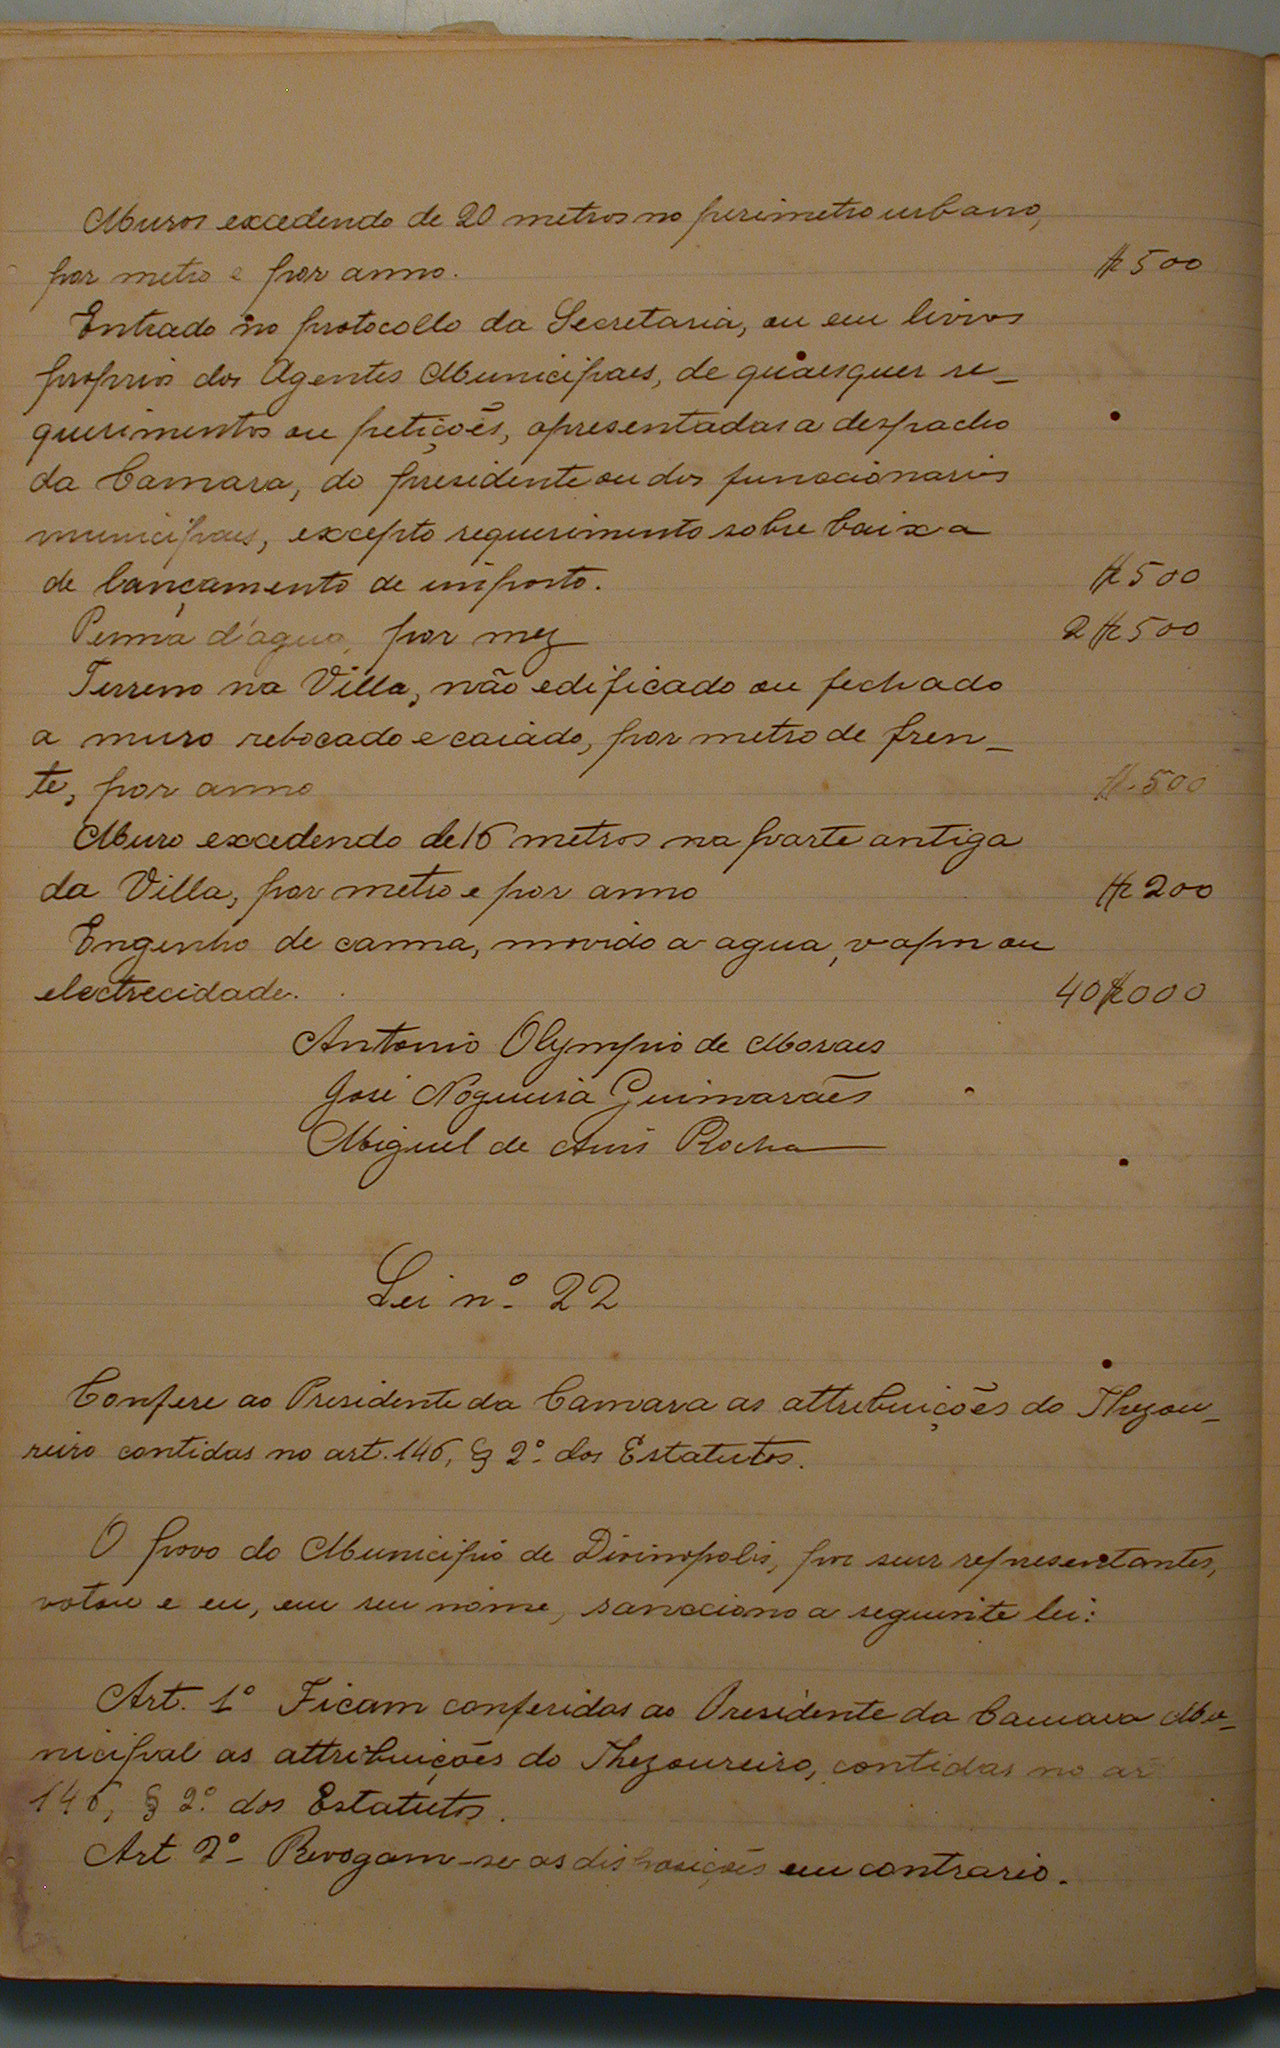 Muros excedendo de 20 metros no perimetro urbano,
por metro e por anno. $500
Entrado no protocollo da Secretaria, ou em livros
proprios dos Agentes Municipaes, de quaesquer re-
querimentos ou petições, apresentadas a despacho
da Camara, do presidente ou dos funccionarios
municipaes, excepto requerimento sobre baixa
de lançamento de imposto. $500
Penna d'agua, por mez 2$500
Terreno na Villa, não edificado ou fechado
a muro rebocado e caiado, por metro de fren-
te, por anno $500
Muro excedendo de 16 metros na parte antiga
da Villa, por metro e por anno $200
Engenho de canna, movido a agua, vapor ou
electrecidade. 40$000
Antonio Olympio de Moraes
José Nogueira Guimarães
Miguel de Assis Rocha
Lei nº 22
Confere ao Presidente da Camara as attribuições do Thezou-
reiro contidas no art. 146, § 2º dos Estatutos.
O povo do Municipio de Divinopolis, por seus representantes,
votou e eu, em seu nome, sancciono a seguinte lei:
Art. 1º Ficam conferidas ao Presidente da Camara Mu-
nicipal as attribuições do Thezoureiro, contidas no art
146, § 2º dos Estatutos.
Art 2º - Revogam-se as disposições em contrario.